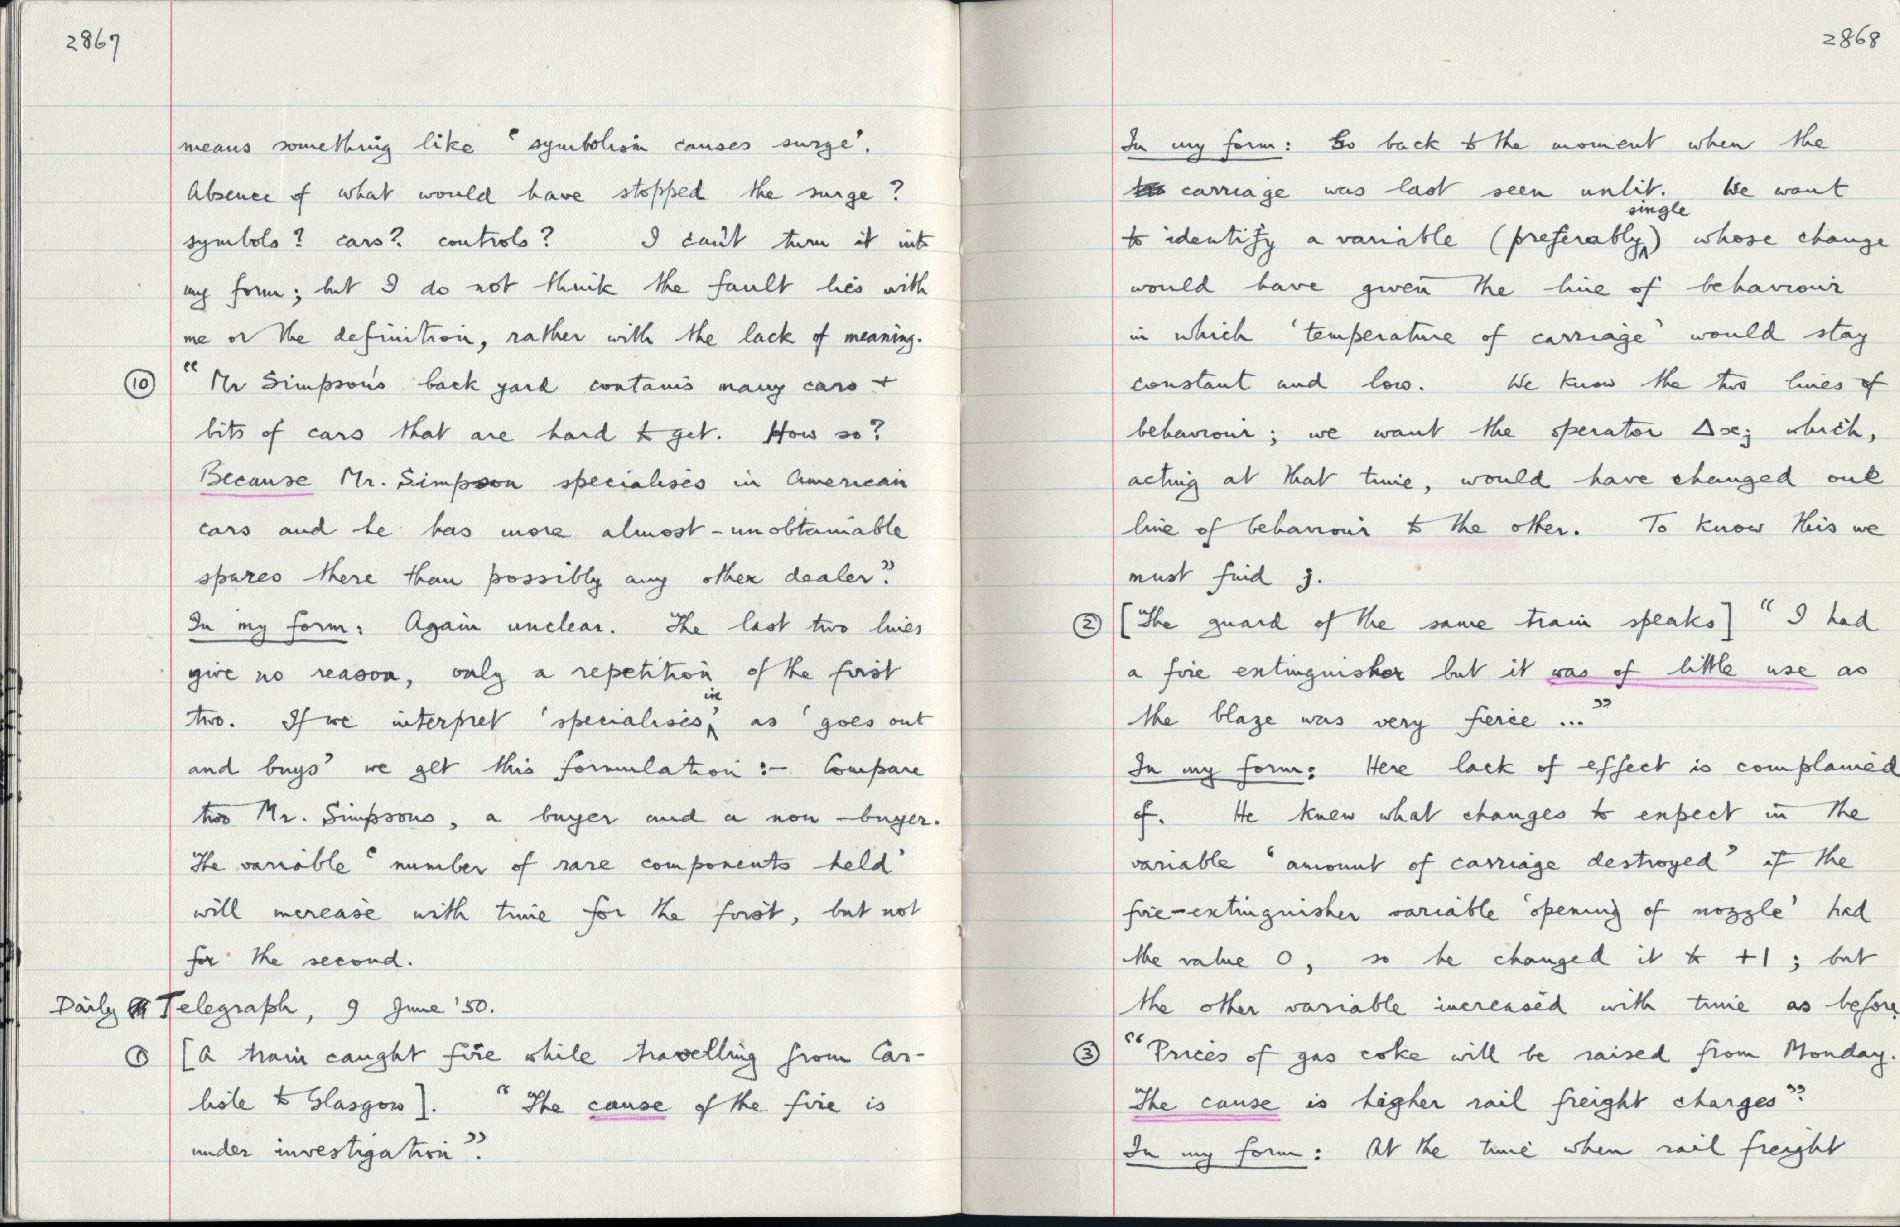 2867
means something like 'symbolism causes surge'.
Absence of what would have stopped the surge?
symbols? cars? controls? I can't turn it into
my form; but I do not think the fault lies with
me or the definition, rather with the lack of meaning.
⑩ "Mr Simpson's back yard contains many cars +
bits of cars that are hard to get. How so?
Because Mr. Simpson specialises in American
cars and he has more almost-unobtainable
spares there than possibly any other dealer".
In my form: Again unclear. The last two lines
give no reason, only a repetition of the first
two. If we interpret 'specialises in' as 'goes out
and buys' we get this formulation :- Compare
two Mr. Simpsons, a buyer and a non-buyer.
The variable 'number of rare components held'
will increase with time for the first, but not
for the second.
Daily Telegraph, 9 June '50.
① [A train caught fire while travelling from Car-
lisle to Glasgow]. "The cause of the fire is
under investigation".
2868
In my form: Go back to the moment when the
carriage was last seen unlit. We want
to identify a variable (preferably single) whose change
would have given the line of behaviour
in which 'temperature of carriage' would stay
constant and low. We know the two lines of
behaviour; we want the operator Δxj which,
acting at that time, would have changed one
line of behaviour to the other. To know this we
must find j.
② [The guard of the same train speaks] "I had
a fire extinguisher but it was of little use as
the blaze was very fierce ..."
In my form: Here lack of effect is complained
of. He knew what changes to expect in the
variable 'amount of carriage destroyed' if the
fire-extinguisher variable 'opening of nozzle' had
the value 0, so he changed it to +1; but
the other variable increased with time as before.
③ "Prices of gas coke will be raised from Monday.
The cause is higher rail freight charges".
In my form: At the time when rail freight